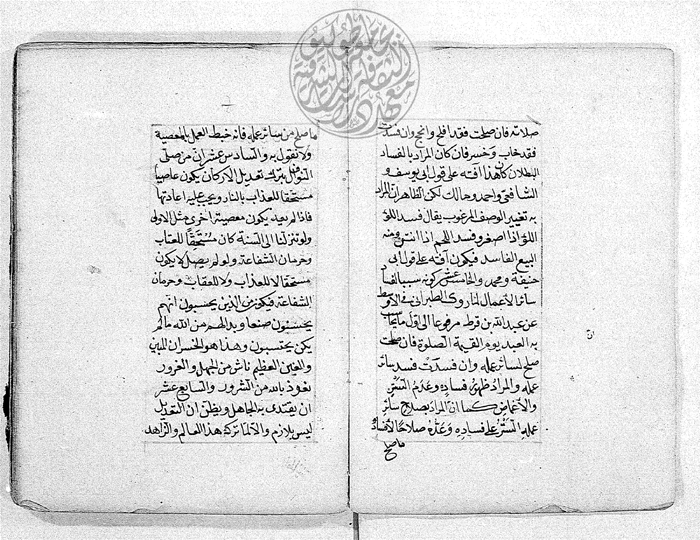 صلاته فان صلحت فقد افلح وانجح وان فسدت
فقد خاب وخسر فان كان المراد بالفساد
البطلان كان هذا آفته على قول ابي يوسف و
الشافعي واحمد ومالك لكن الظاهر ان المراد
به تغيير الوصف المرغوب يقال فسد اللؤلؤ
اذا اصفر وفسد اللحم اذا انتن ومنه
البيع الفاسد فيكون آفته على قول ابي
حنيفة ومحمد والخامس عشر كونه سببا لفساد
سائر الاعمال لما روى الطبراني في الاوسط
عن عبد الله بن قرط مرفوعا الى اول ما يحاسب
به العبد يوم القيمة الصلوة فان صلحت
صلح له سائر عمله وان فسدت فسد سائر
عمله والمراد ظهور فساده وعدم التستر
والاغماض كما ان المراد بصلاح سائر
عمله التستر على فساده وعده صلاحا لا فسادا
ما صلح
ما صلح من سائر عمله فانه خبط العمل بالمعصية
ولا نقول به والسادس عشر ان من صلى
النوافل بترك تعديل الاركان يكون عاصيا
مستحقا للعذاب بالنار ويجب عليه اعادتها
فاذا لم يعد يكون معصيته اخرى مثل الاولى
ولو تنزلنا الى السنة كان مستحقا للعتاب
وحرمان الشفاعة ولو لم يصل لا يكون
مستحقا لا للعذاب ولا للعقاب وحرمان
الشفاعة فيكون من الذين يحسبون انهم
يحسنون صنعا وبدا لهم من الله ما لم
يكن يحتسبون وهذا هو الخسران المبين
والغبن العظيم ناش من الجهل والغرور
نعوذ بالله من الشرور والسابع عشر
ان يقتدى به الجاهل ويظن ان التعديل
ليس بلازم والا لما تركه هذا العالم والزاهد